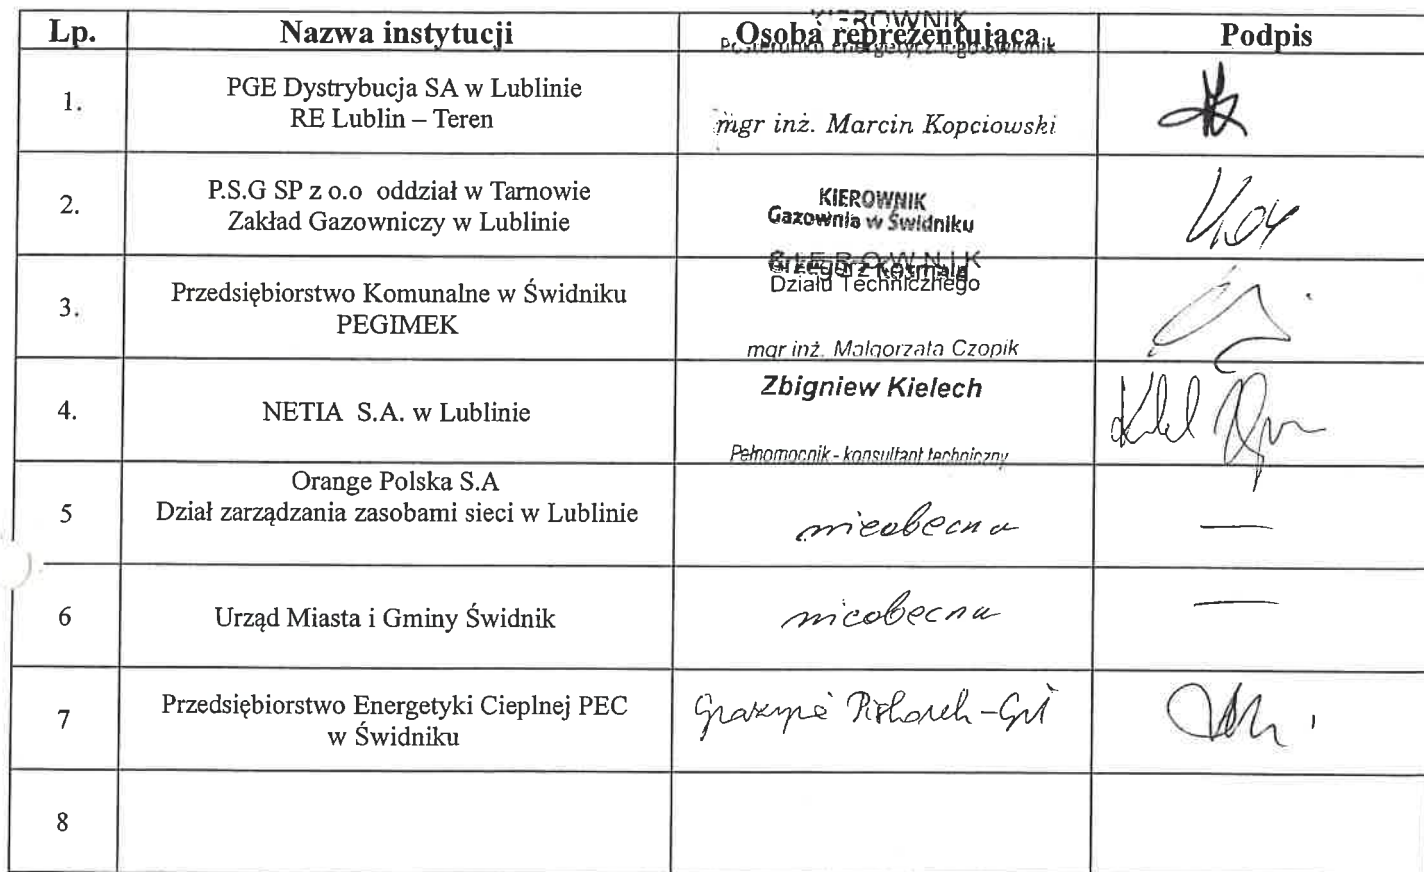 Lp. Nazwa instytucji Osoba reprezentująca Podpis
KIEROWNIK
Posterunku energetycznego Świdnik
1. PGE Dystrybucja SA w Lublinie
RE Lublin – Teren
mgr inż. Marcin Kopciowski
2. P.S.G SP z o.o oddział w Tarnowie
Zakład Gazowniczy w Lublinie
KIEROWNIK
Gazownia w Świdniku
Grzegorz Kosmala
3. Przedsiębiorstwo Komunalne w Świdniku
PEGIMEK
KIEROWNIK
Działu Technicznego
mgr inż. Małgorzata Czopik
4. NETIA S.A. w Lublinie
Zbigniew Kielech
Pełnomocnik - konsultant techniczny
5 Orange Polska S.A
Dział zarządzania zasobami sieci w Lublinie
nieobecna —
6 Urząd Miasta i Gminy Świdnik nieobecna —
7 Przedsiębiorstwo Energetyki Cieplnej PEC
w Świdniku
8